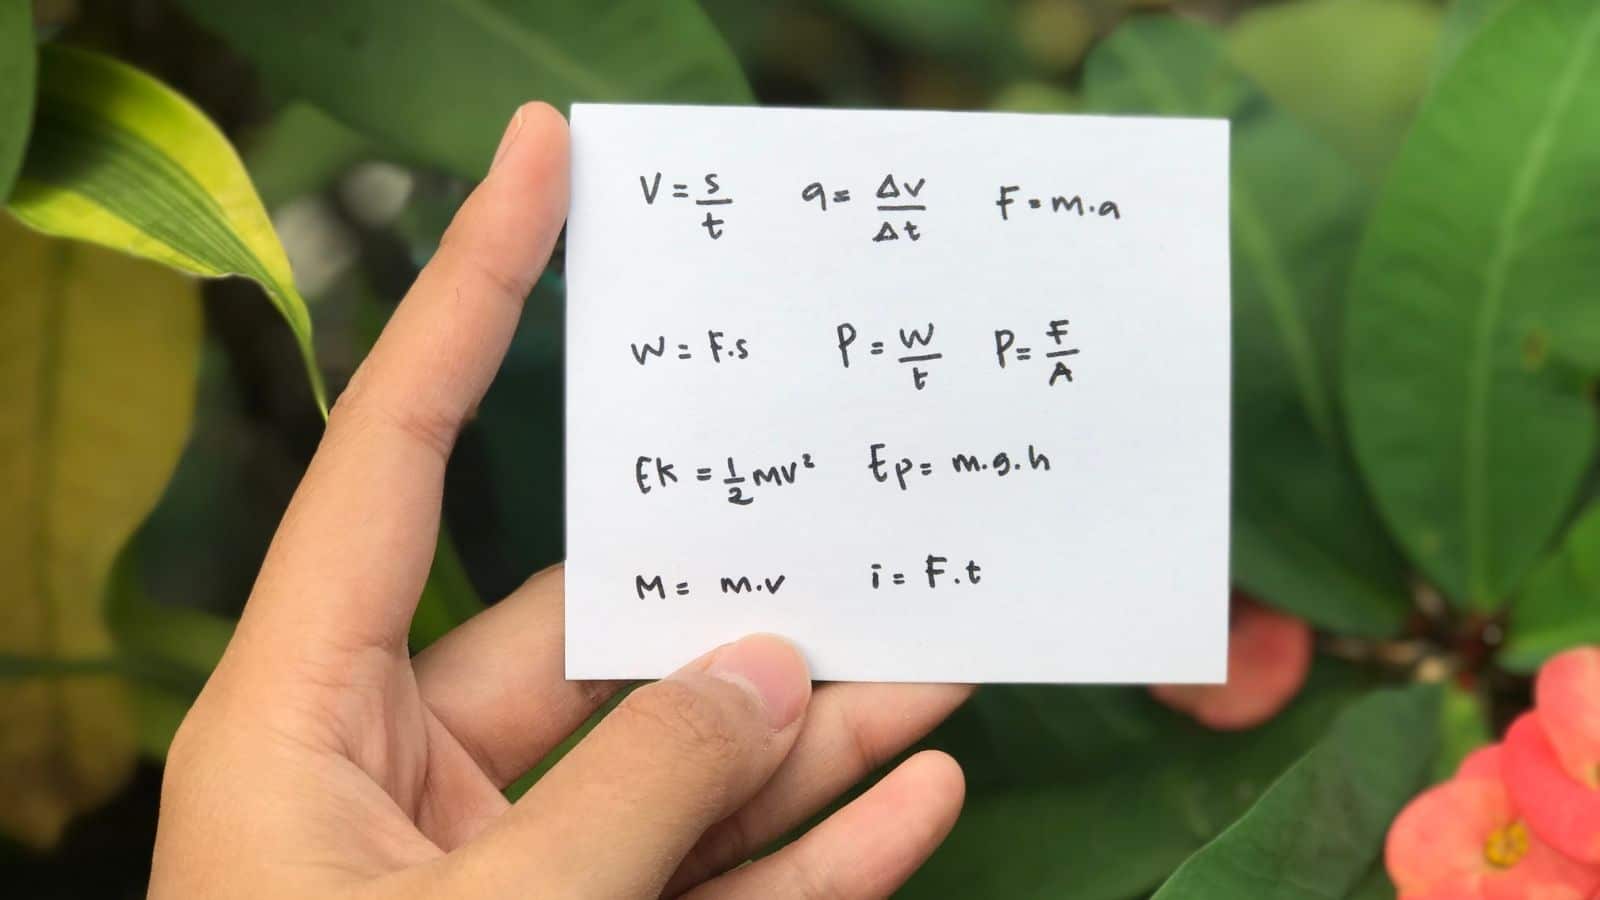 V = s/t a = Δv/Δt F = m.a
W = F.s P = W/t P = F/A
Ek = 1/2 mv² Ep = m.g.h
M = m.v i = F.t